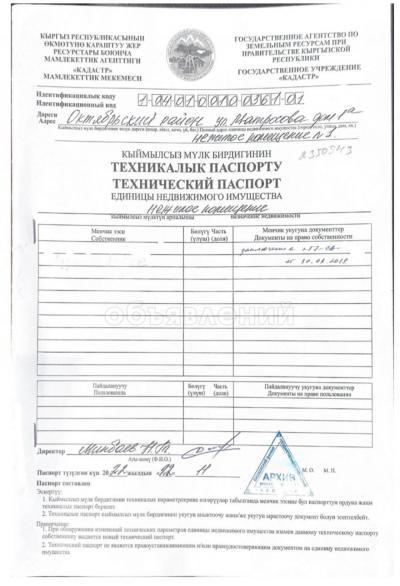 КЫРГЫЗ РЕСПУБЛИКАСЫНЫН
ӨКМӨТҮНӨ КАРАШТУУ ЖЕР
РЕСУРСТАРЫ БОЮНЧА
МАМЛЕКЕТТИК АГЕНТТИГИ
«КАДАСТР»
МАМЛЕКЕТТИК МЕКЕМЕСИ
ГОСУДАРСТВЕННОЕ АГЕНТСТВО ПО
ЗЕМЕЛЬНЫМ РЕСУРСАМ ПРИ
ПРАВИТЕЛЬСТВЕ КЫРГЫЗСКОЙ
РЕСПУБЛИКИ
ГОСУДАРСТВЕННОЕ УЧРЕЖДЕНИЕ
«КАДАСТР»
Идентификациялык коду
Идентификационный код
Дареги
Адрес Октябрьский район ул. дом 1а
нежилое помещение №
КЫЙМЫЛСЫЗ МҮЛК БИРДИГИНИН
ТЕХНИКАЛЫК ПАСПОРТУ
ТЕХНИЧЕСКИЙ ПАСПОРТ
ЕДИНИЦЫ НЕДВИЖИМОГО ИМУЩЕСТВА
Нежилое помещение
кыймылсыз мүлктүн арналышы назначение недвижимости
Менчик ээси
Собственник
Бөлүгү Часть
(үлүшү) (доля)
Менчик укугуна документтер
Документы на право собственности
объявлений
Пайдалануучу
Пользователь
Бөлүгү Часть
(үлүшү) (доля)
Пайдалануучу укугуна документтер
Документы на право пользования
Директор
Аты-жөнү (Ф.И.О.)
АРХИВ
М. О. М. П.
Паспорт түзүлгөн күн 20 жылдын 11
Паспорт составлен
Эскертүү:
1. Кыймылсыз мүлк бирдигинин техникалык параметрлерине өзгөрүүлөр табылганда менчик ээсине бул паспорттун ордуна жаңы
техникалык паспорт берилет.
2. Техникалык паспорт кыймылсыз мүлк бирдигине укугун аныктоочу жана/же укугун ырастоочу документ болуп эсептелбейт.
Примечание:
1. При обнаружении изменений технических параметров единицы недвижимого имущества взамен данному техническому паспорту
собственнику выдается новый технический паспорт.
2. Технический паспорт не является правоустанавливающим и/или правоудостоверяющим документом на единицу недвижимого
имущества.